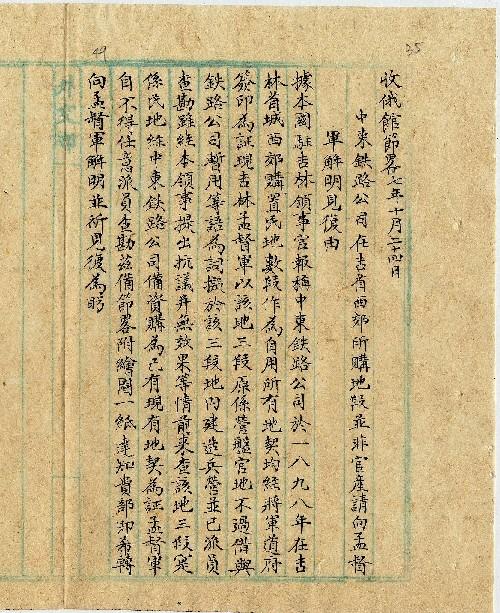 35
49
收俄館節畧七年十月二十四日
中東鉄路公司在吉省西郊所購地段並非官産請向孟督
軍解明見復由
據本國駐吉林領事官報稱中東鉄路公司於一八九八年在吉
林省城西郊購置民地數段作為自用所有地契均経將軍道府
簽印為証現吉林孟督軍以該地三段原係營盤官地不過借與
鉄路公司暫用等語為詞擬於該三段地内建造兵營並已派員
查勘雖経本領事提出抗議并無效果等情前來查該地三段實
係民地経中東鉄路公司備資購為己有現有地契為証孟督軍
自不得任意派員查勘茲備節畧附繪圖一紙達知貴部即希轉
向孟督軍解明並祈見復為盼